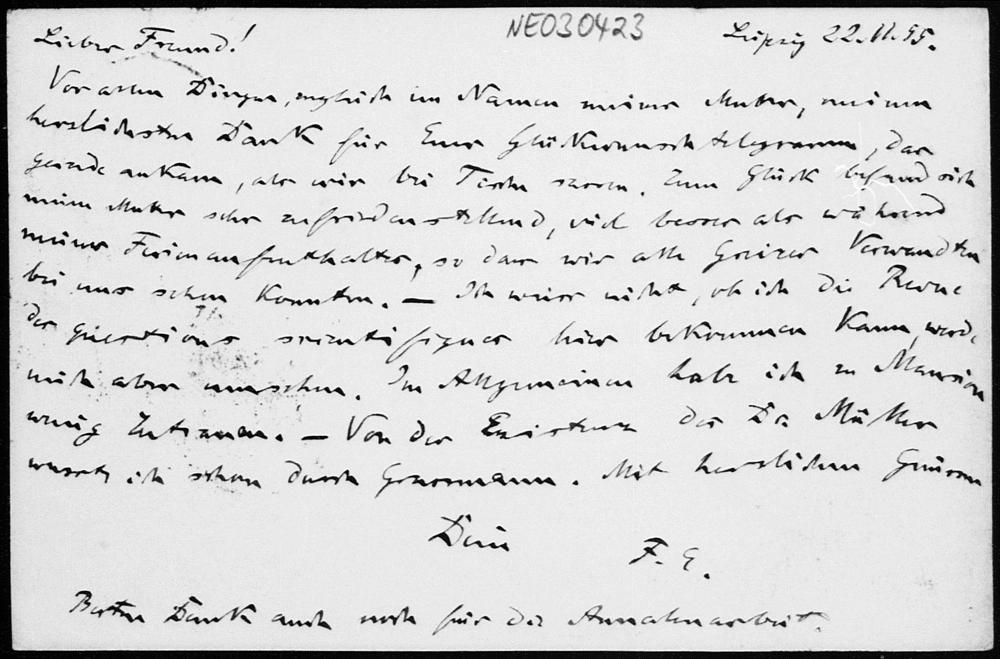 NE030423
Lieber Freund! Leipzig 22.11.95.
Vor allen Dingen, zugleich im Namen meiner Mutter, meinen
herzlichsten Dank für Euer Glückwunschtelegramm, das
gerade ankam, als wir bei Tische sassen. Zum Glück befand sich
meine Mutter sehr zufriedenstellend, viel besser als während
meines Ferienaufenthaltes, so dass wir alle Greizer Verwandten
bei uns sehen konnten. — Ich weiss nicht, ob ich die Revue
des questions scientifiques hier bekommen kann, werde
mich aber umsehen. Im Allgemeinen habe ich zu Mansion
wenig Zutrauen. — Von der Existenz des Dr. Müller
wusste ich schon durch Grassmann. Mit herzlichen Grüssen
Dein
F. E.
Besten Dank auch noch für die Annalenarbeit.